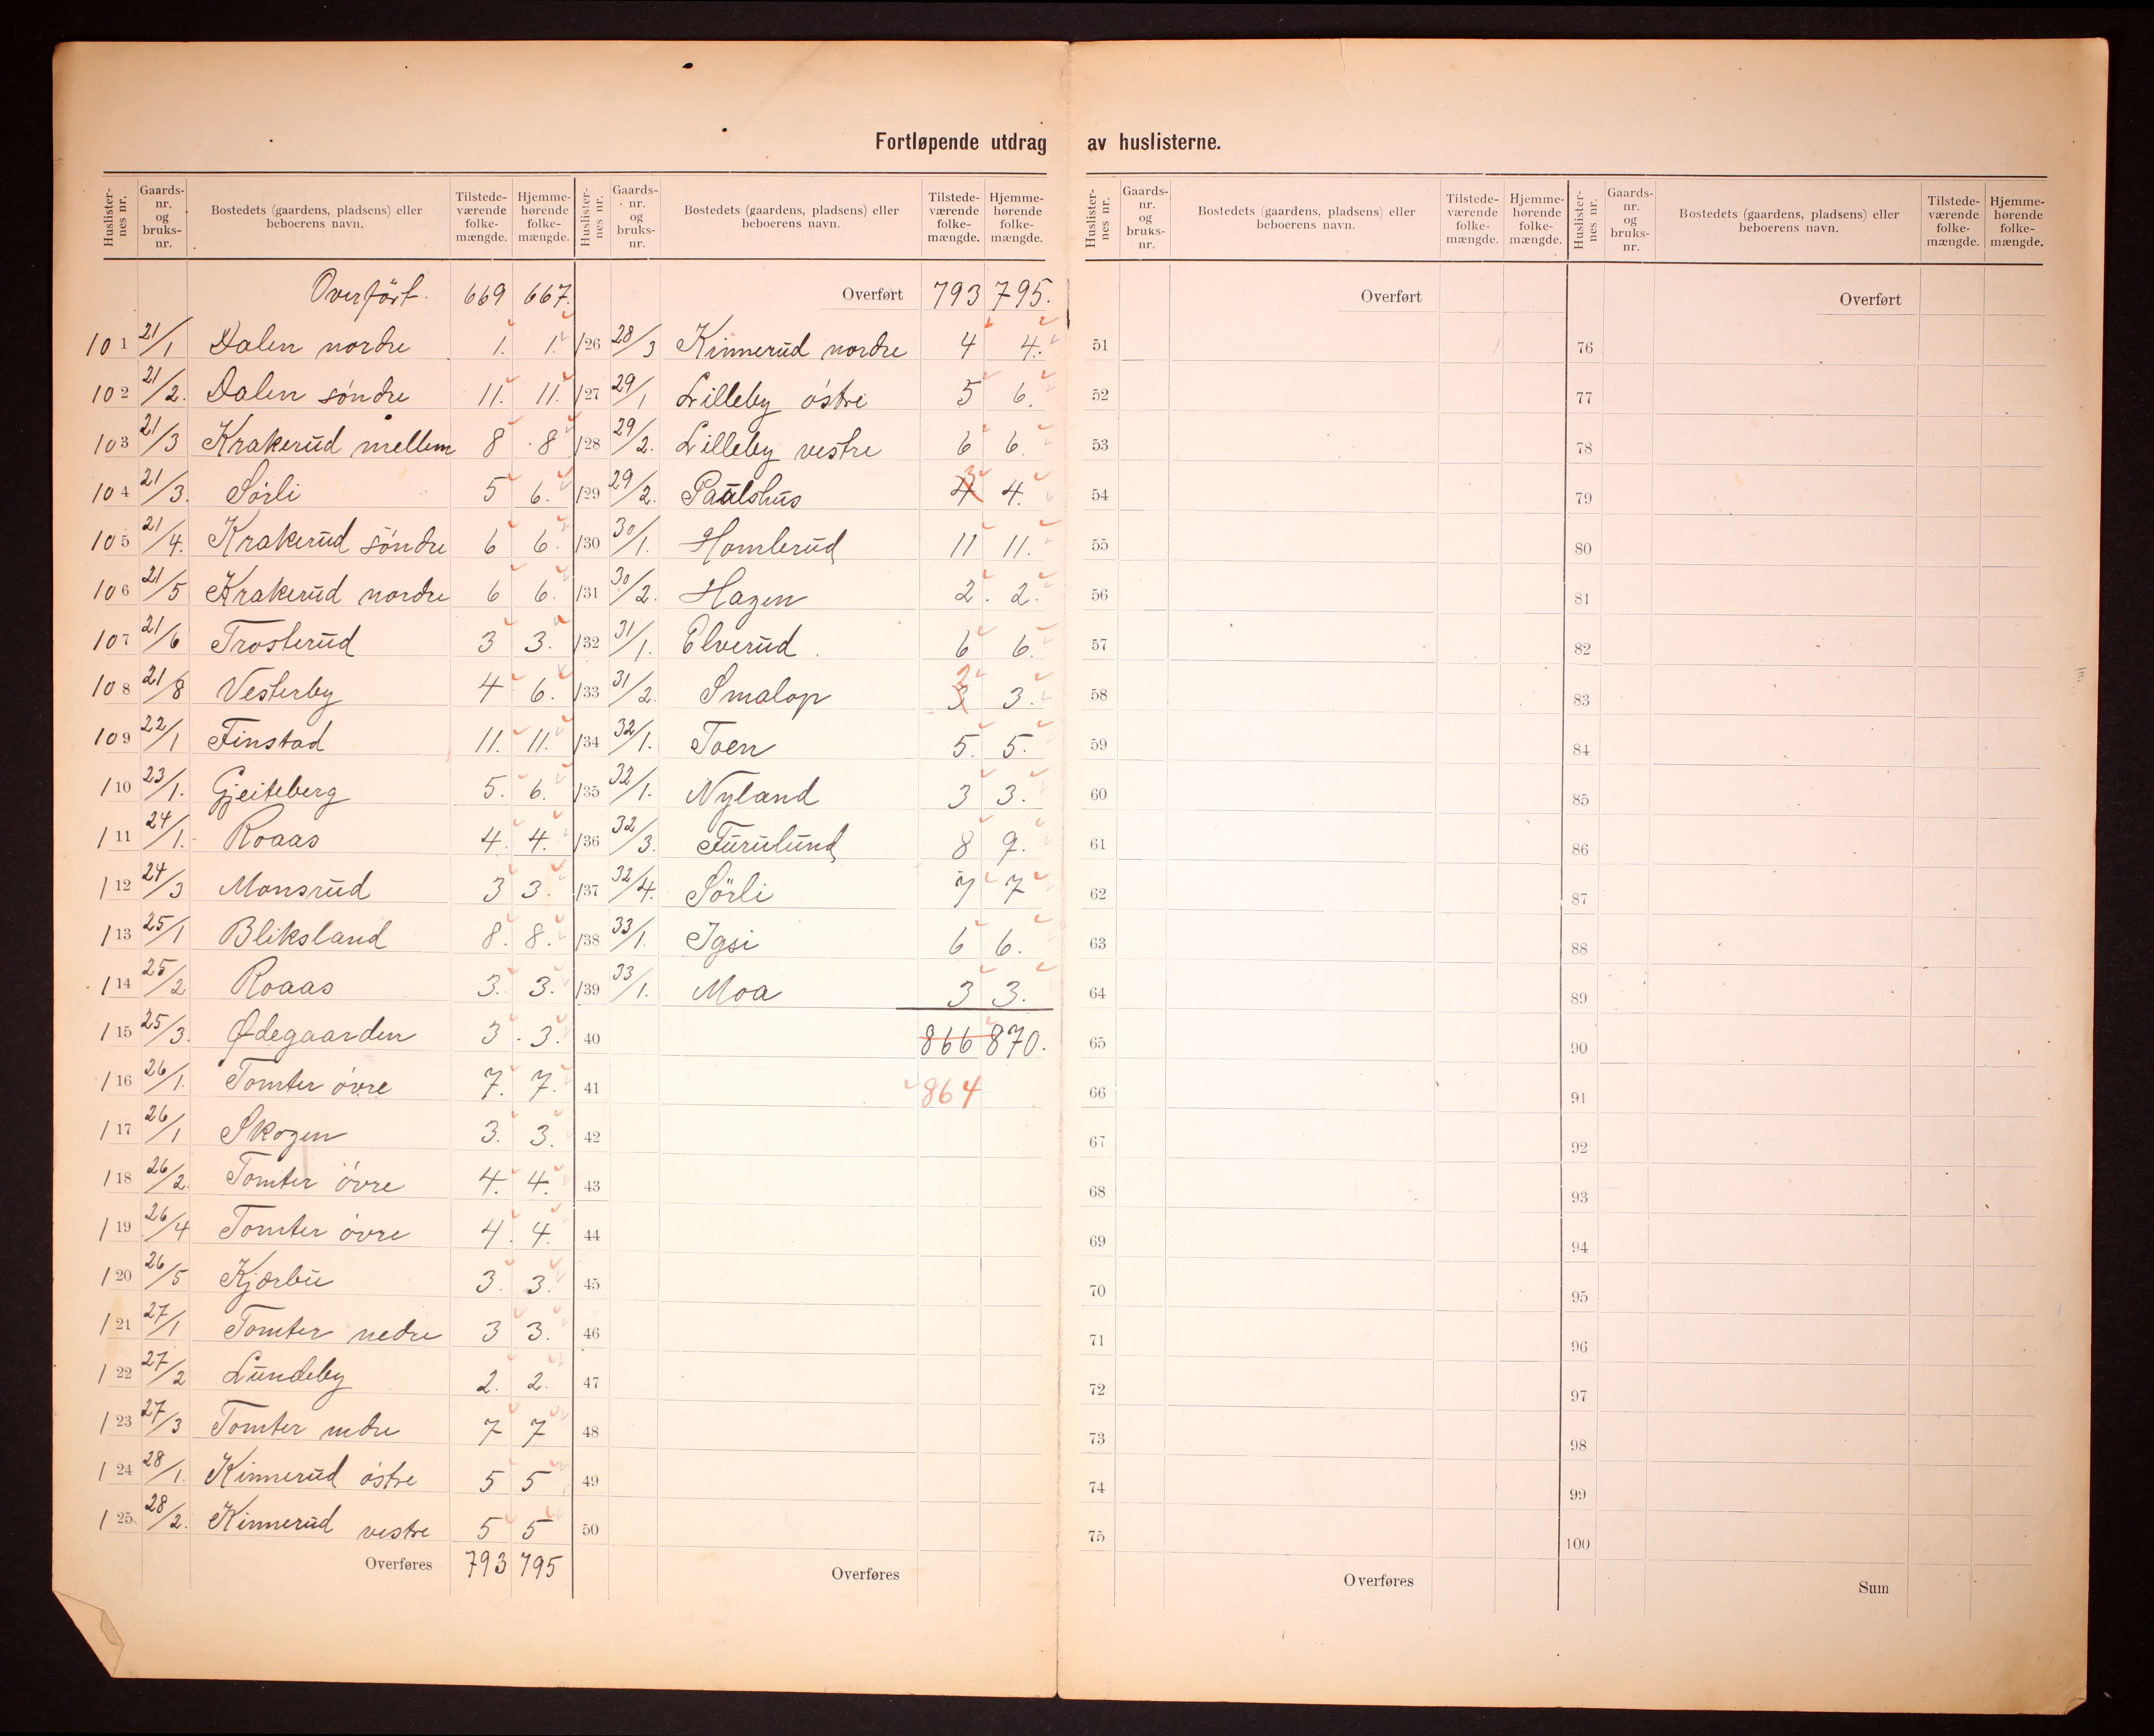 Fortløpende utdrag av huslisterne.
Huslister-nes nr. Gaards-nr. og bruks-nr. Bostedets (gaardens, pladsens) eller beboerens navn. Tilstede-værende folke-mængde. Hjemme-hørende folke-mængde.
Overført. 669 667.
101 21/1 Dalen nordre 1. 1.
102 21/2. Dalen söndre 11. 11.
103 21/3 Krakerud mellem 8 8
104 21/3. Sörli 5 6.
105 21/4. Krakerud söndre 6 6.
106 21/5 Krakerud nordre 6 6.
107 21/6 Trosterud 3 3.
108 21/8 Vesterby 4 6.
109 22/1 Finstad 11. 11.
110 23/1. Gjeiteberg 5. 6.
111 24/1. Roaas 4. 4.
112 24/3 Monsrud 3 3.
113 25/1 Bliksland 8. 8.
114 25/2 Roaas 3. 3.
115 25/3. Ødegaarden 3. 3.
116 26/1. Tomter övre 7. 7.
117 26/1 Skogen 3. 3.
118 26/2. Tomter övre 4. 4.
119 26/4 Tomter övre 4. 4.
120 26/5 Kjærbu 3. 3.
121 27/1 Tomter nedre 3 3.
122 27/2 Lundeby 2. 2.
123 27/3 Tomter nedre 7 7
124 28/1. Kinnerud östre 5 5
125 28/2. Kinnerud vestre 5 5
Overføres 793 795
Huslister-nes nr. Gaards-nr. og bruks-nr. Bostedets (gaardens, pladsens) eller beboerens navn. Tilstede-værende folke-mængde. Hjemme-hørende folke-mængde.
Overført 793 795.
126 28/3 Kinnerud nordre 4 4.
127 29/1 Lilleby östre 5 6.
128 29/2. Lilleby vestre 6 6.
129 29/2. Paulshus 4 3 4.
130 30/1. Homlerud 11 11.
131 30/2. Hagen 2. 2.
132 31/1. Elverud 6 6.
133 31/2. Smalop 3 2 3.
134 32/1. Toen 5. 5.
135 32/1. Nyland 3 3.
136 32/3. Furulund 8 9.
137 32/4. Sörli 7 7
138 33/1. Igsi 6 6.
139 33/1. Moa 3 3.
40 866 870.
41 864
42
43
44
45
46
47
48
49
50
Overføres
Huslister-nes nr. Gaards-nr. og bruks-nr. Bostedets (gaardens, pladsens) eller beboerens navn. Tilstede-værende folke-mængde. Hjemme-hørende folke-mængde.
Overført
51
52
53
54
55
56
57
58
59
60
61
62
63
64
65
66
67
68
69
70
71
72
73
74
75
Overføres
Huslister-nes nr. Gaards-nr. og bruks-nr. Bostedets (gaardens, pladsens) eller beboerens navn. Tilstede-værende folke-mængde. Hjemme-hørende folke-mængde.
Overført
76
77
78
79
80
81
82
83
84
85
86
87
88
89
90
91
92
93
94
95
96
97
98
99
100
Sum